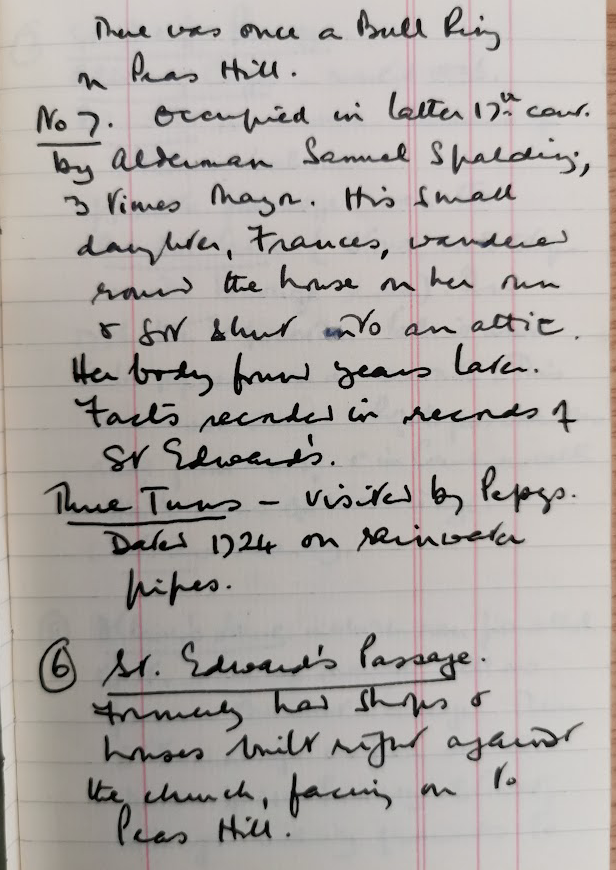 There was once a Bull Ring
on Peas Hill.
No 7. Occupied in latter 17th cent.
by Alderman Samuel Spalding,
3 times Mayor. His small
daughter, Frances, wandered
round the house on her own
& got shut into an attic.
Her body found years later.
Facts recorded in records of
St Edward's.
Three Tuns – visited by Pepys.
Dated 1724 on rainwater
pipes.
⑥ St. Edward's Passage.
Formerly had shops &
houses built right against
the church, facing on to
Peas Hill.